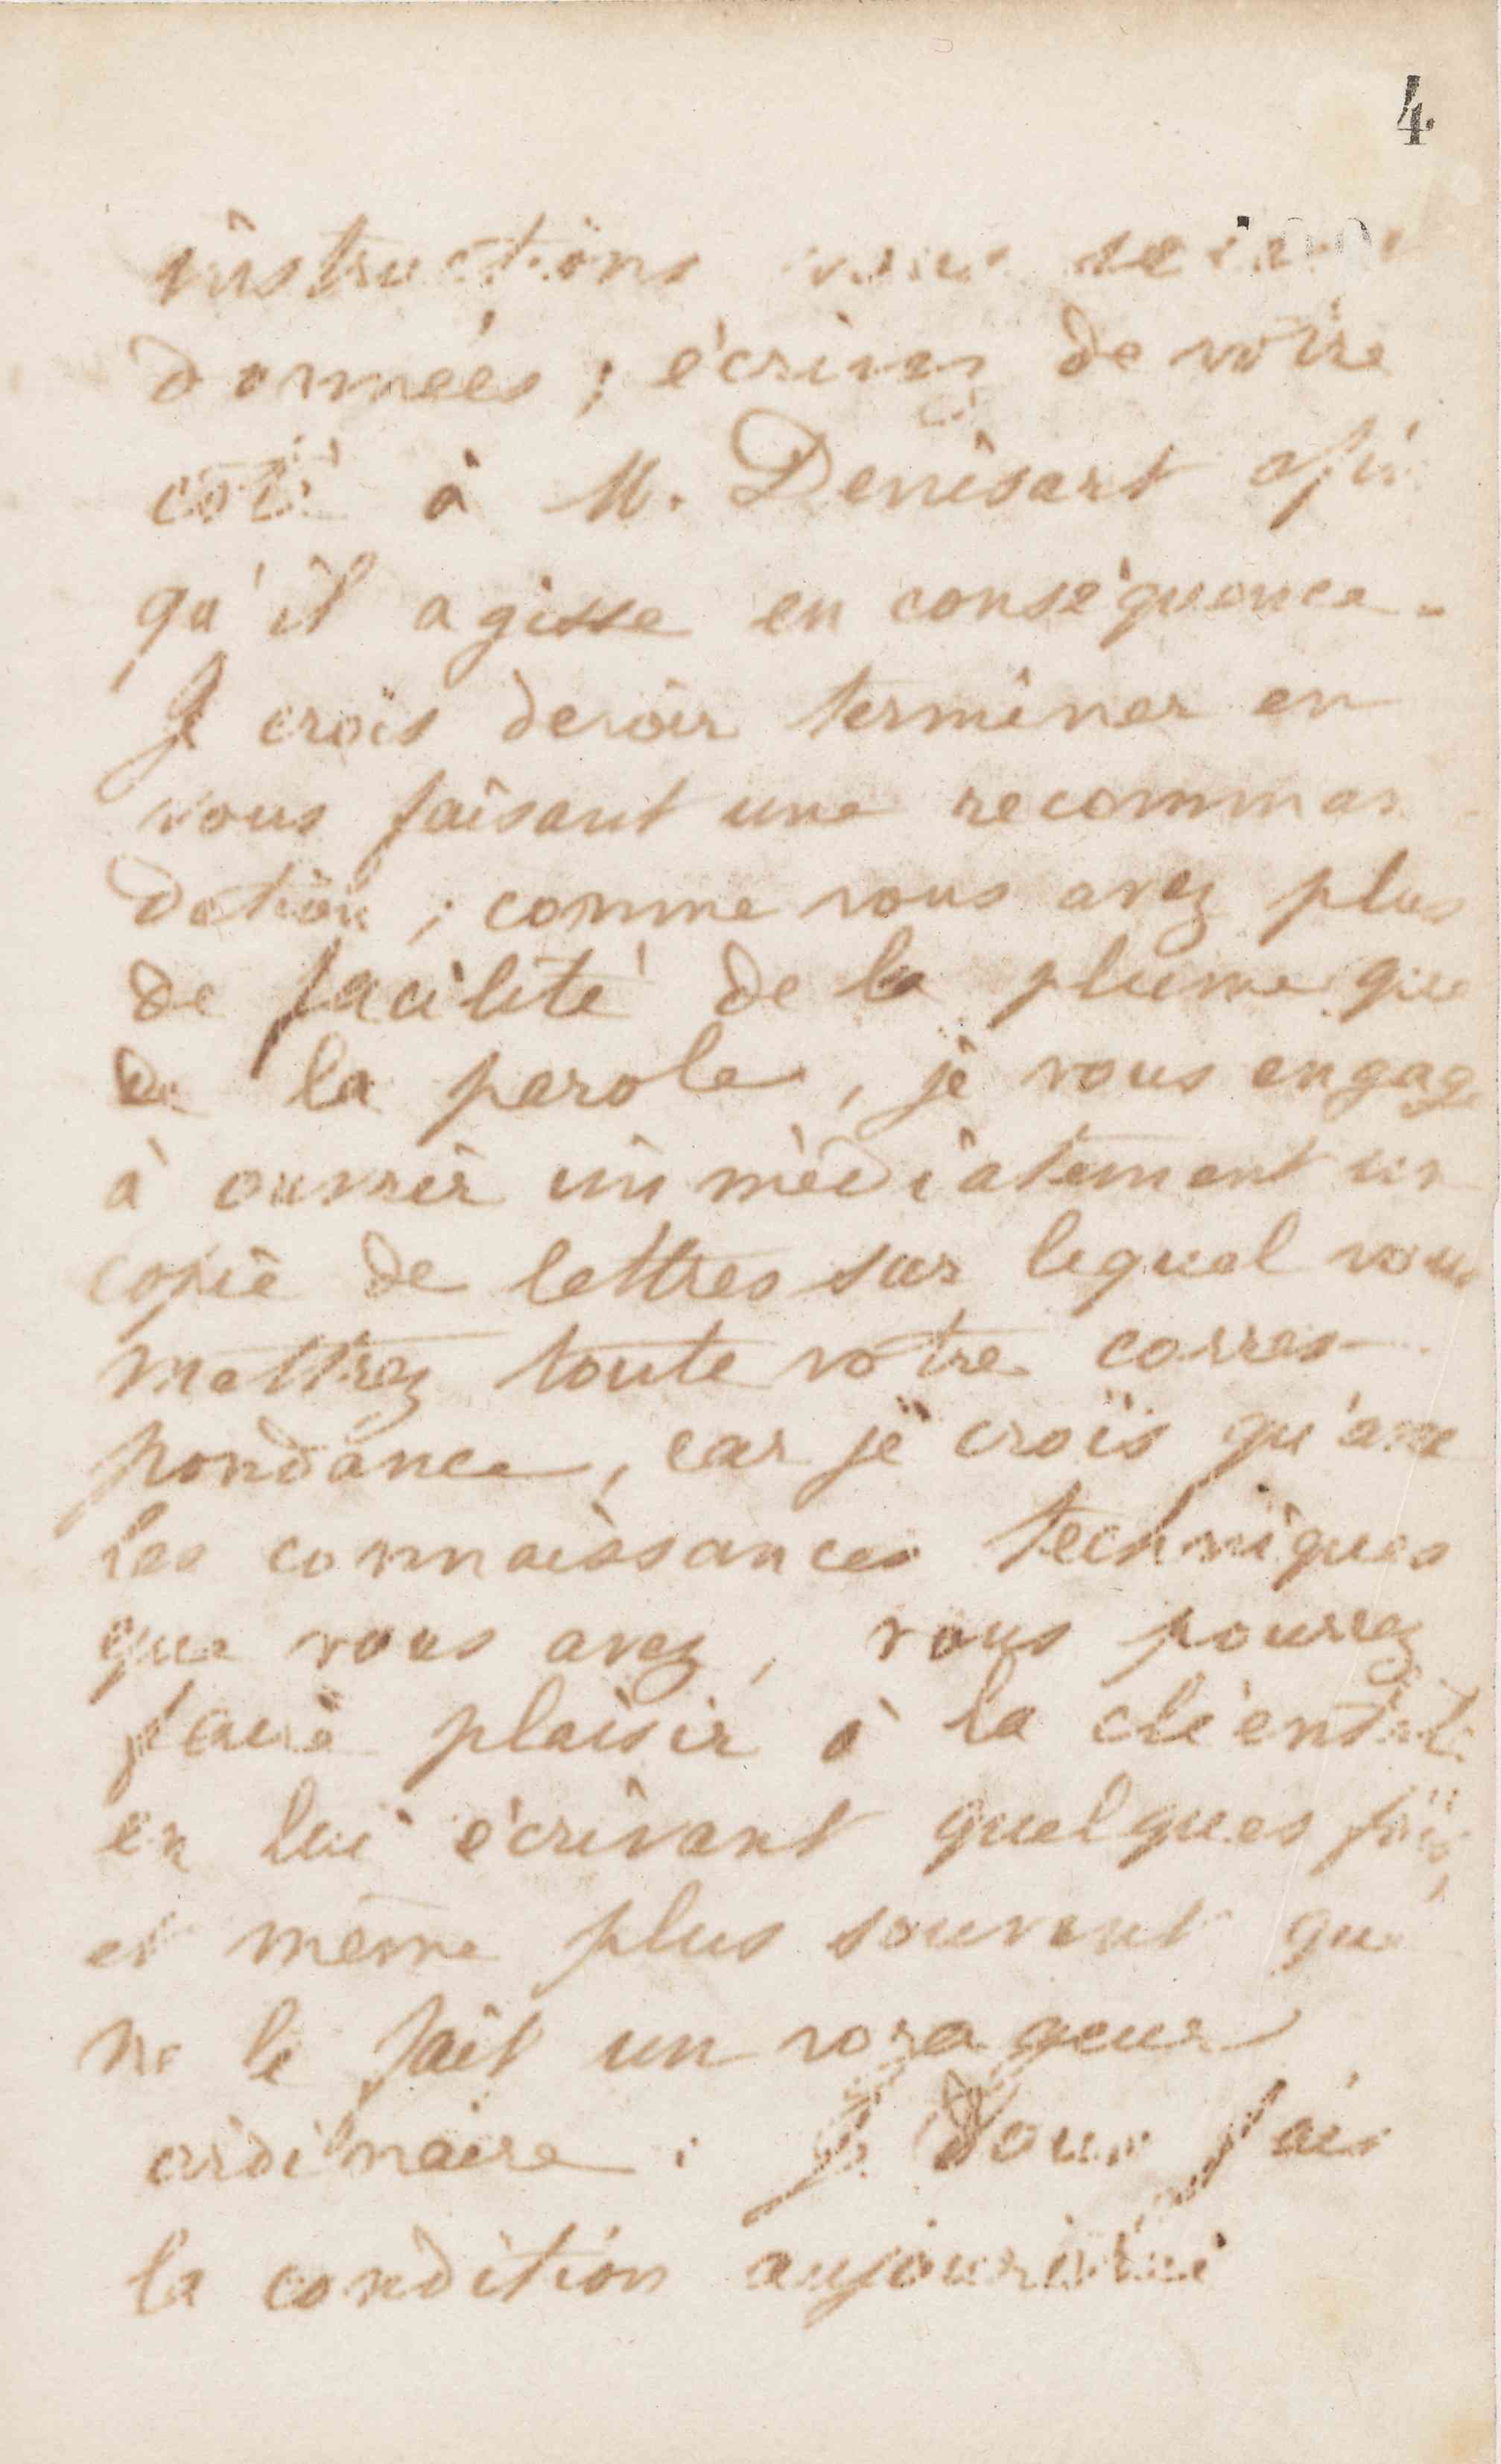 4
instructions vous seront
données ; écrivez de votre
coté à M. Denisart afin
qu'il agisse en conséquence.
Je crois devoir terminer en
vous faisant une recomman
dation ; comme vous avez plus
de facilité de la plume que
de la parole, je vous engage
à ouvrir immédiatement un
copie de lettres sur lequel vous
mettrez toute votre corres-
pondance, car je crois qu'avec
les connaissances techniques
que vous avez, vous pourrez
faire plaisir à la clientèle
en lui écrivant quelques fois,
et même plus souvent que
ne le fait un voyageur
ordinaire. Je vous fais
la condition aujourd'hui